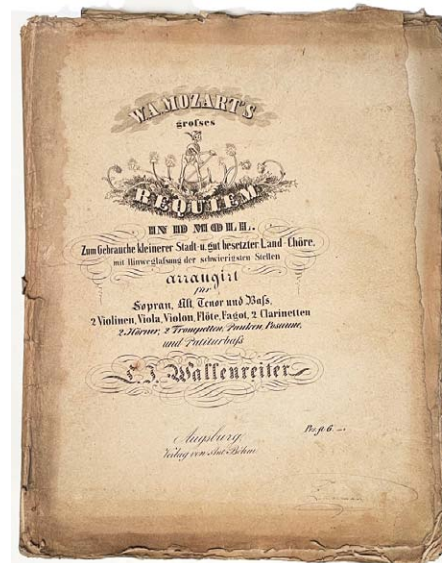 W.A. MOZART'S
grofses
REQUIEM
IN D MOLL.
Zum Gebrauche kleinerer Stadt- u. gut besetzter Land-Chöre.
mit Hinweglafsung der schwierigsten Stellen
arrangirt
für
Sopran, Alt, Tenor und Bafs,
2 Violinen, Viola, Violon, Flöte, Fagot, 2 Clarinetten
2 Hörner, 2 Trompetten, Pauken, Posaune,
und Partiturbafs
Wallenreiter
Augsburg,
Verlag von Ant. Böhm
Pr. fl. 6